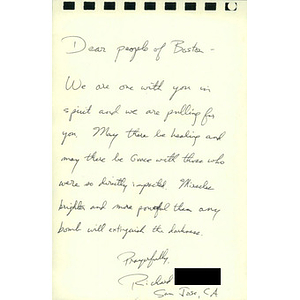 Dear people of Boston -
We are one with you in
spirit and we are pulling for
you. May there be healing and
may there be Grace with those who
were so directly impacted. Miracles
brighter and more powerful than any
bomb will extinguish the darkness.
Prayerfully,
Richard
San Jose, CA